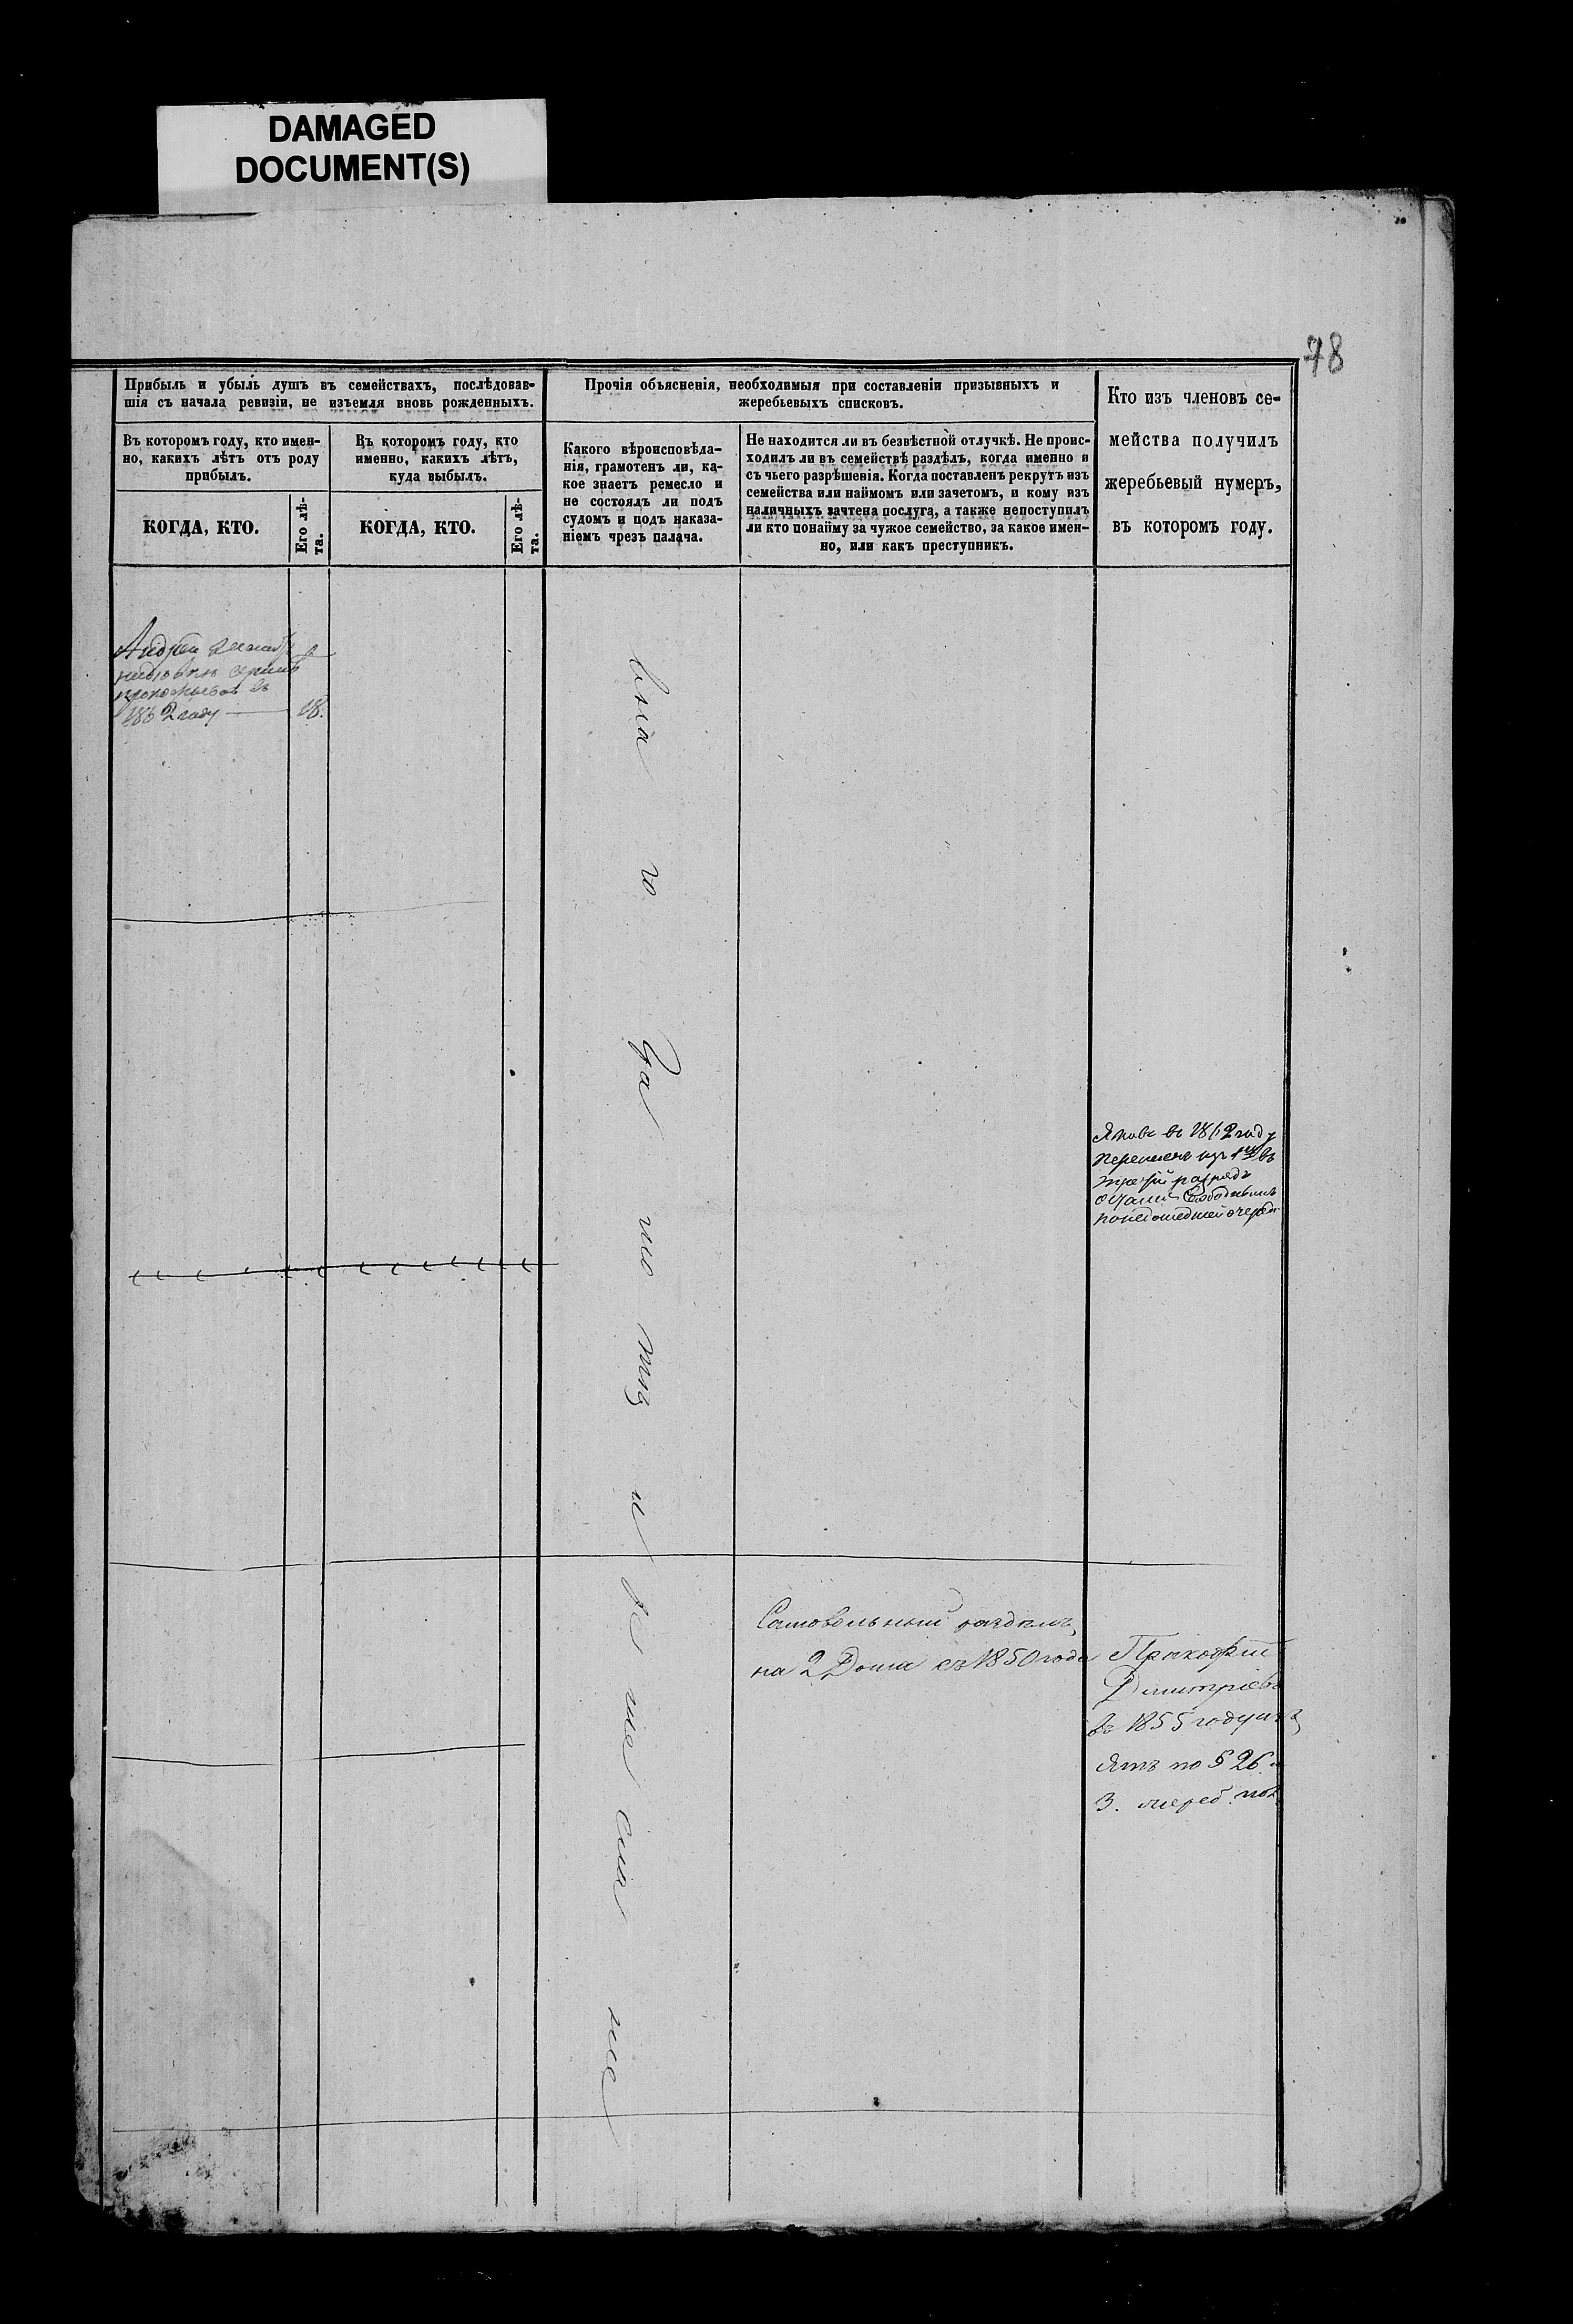 DAMAGED
DOCUMENT(S)
78
Прибыль и убыль душъ въ семействахъ, послѣдовав-
шія съ начала ревизіи, не изъемля вновь рожденныхъ.
Въ которомъ году, кто имен-
но, какихъ лѣтъ отъ роду
прибылъ.
КОГДА, КТО.
Его лѣ-
та.
Въ которомъ году, кто
именно, какихъ лѣтъ,
куда выбылъ.
КОГДА, КТО.
Его лѣ-
та.
Прочія объясненія, необходимыя при составленіи призывныхъ и
жеребьевыхъ списковъ.
Какого вѣроисповѣда-
нія, грамотенъ ли, ка-
кое знаетъ ремесло и
не состоялъ ли подъ
судомъ и подъ наказа-
ніемъ чрезъ палача.
Не находится ли въ безвѣстной отлучкѣ. Не проис-
ходилъ ли въ семействѣ раздѣлъ, когда именно и
съ чьего разрѣшенія. Когда поставленъ рекрутъ изъ
семейства или наймомъ или зачетомъ, и кому изъ
наличныхъ зачтена послуга, а также непоступилъ
ли кто понайму за чужое семейство, за какое имен-
но, или какъ преступникъ.
Кто изъ членовъ се-
мейства получилъ
жеребьевый нумеръ,
въ которомъ году.
Андрей
въ
1862 году 18.
Яковъ въ 1862 году
въ
третій разрядъ
очереди
Самовольный раздѣлъ
на 2 Дома съ 1850 года
Прокофій
Дмитріевъ
въ 1855 году
ятъ по § 26
3. жереб. пол.